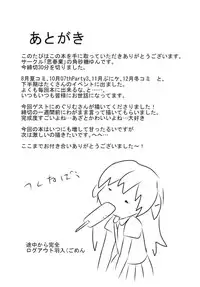 あとがき
このたびはこの本を手に取っていただきありがとうございます。
サークル「思春巣」の角砂糖ゆんです。
今締切30分を切りました。
8月夏コミ、10月07thParty3、11月ぷにケ、12月冬コミ　と、
下半期はたくさんのイベントに出ました。
よくも毎回本に出来るな、と…。
いつもいつも皆様にお世話になってます。
今回ゲストにめぐりむさんが来てくださいました!
締切の一週間前にわがまま言って描いてもらいました。
完成度すごいよね…あざとかわいいよね…大好き
今回の本はいつにも増して甘ったるいですが
次は激しいの描きたいです～。
ここまでお付き合いありがとうございました～!
つくねばし
途中から完全
ログアウト羽入(ごめん